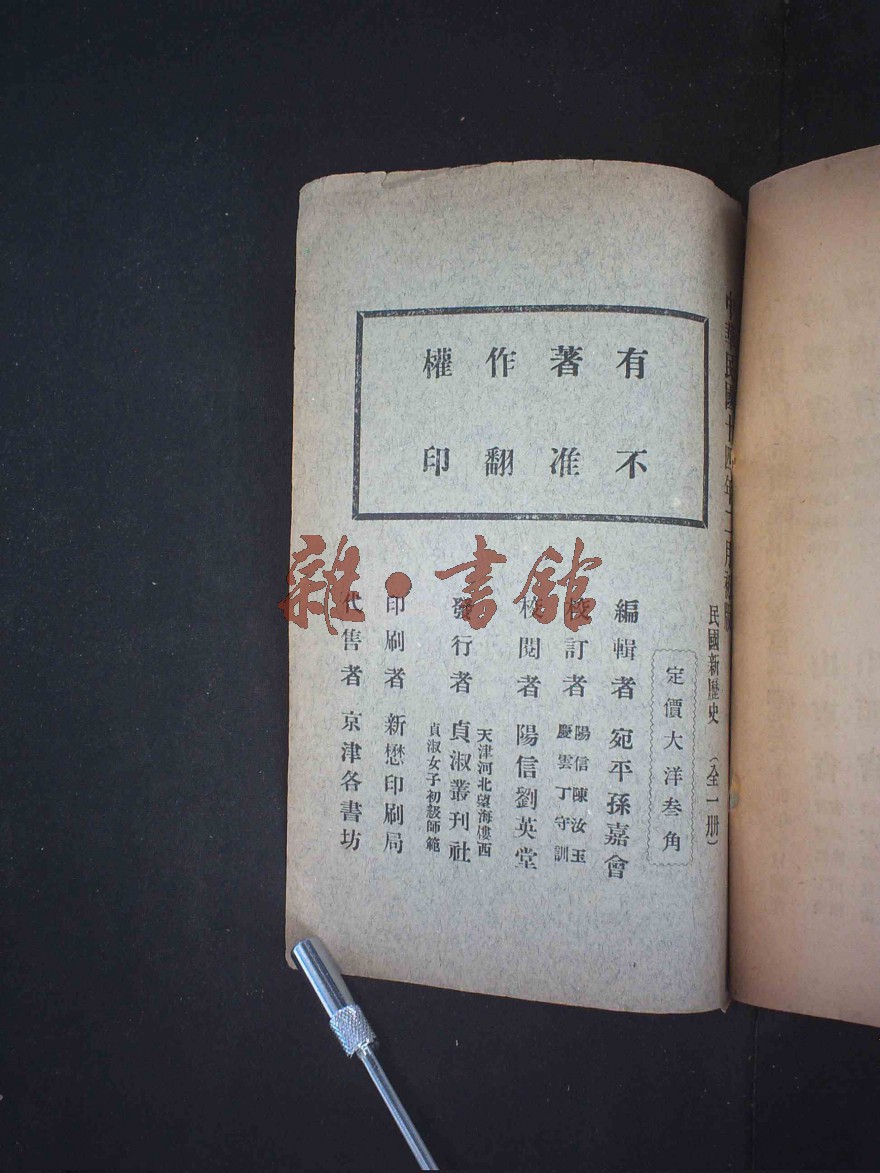 中華民國十四年二月初版
民國新歷史 (全一册)
定價大洋叁角
有著作權
不准翻印
編輯者 宛平孫嘉會
校訂者 陽信陳汝玉
慶雲丁守訓
校閱者 陽信劉英堂
天津河北望海樓西
發行者 貞淑叢刊社
貞淑女子初級師範
印刷者 新懋印刷局
代售者 京津各書坊
雜·書館